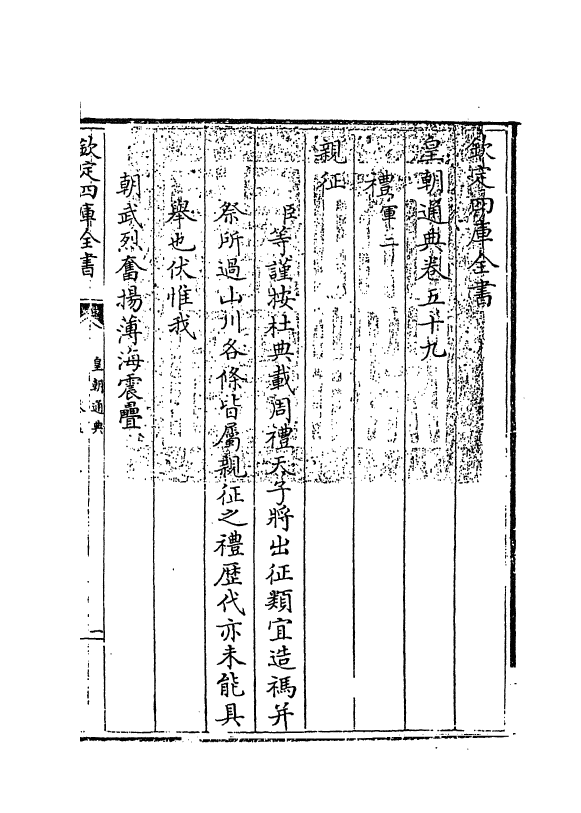 欽定四庫全書
皇朝通典卷五十九
禮軍二
親征
臣等謹按杜典載周禮天子將出征類宜造禡并
祭所過山川各條皆屬親征之禮歷代亦未能具
舉也伏惟我
朝武烈奮揚薄海震疊
欽定四庫全書
皇朝通典